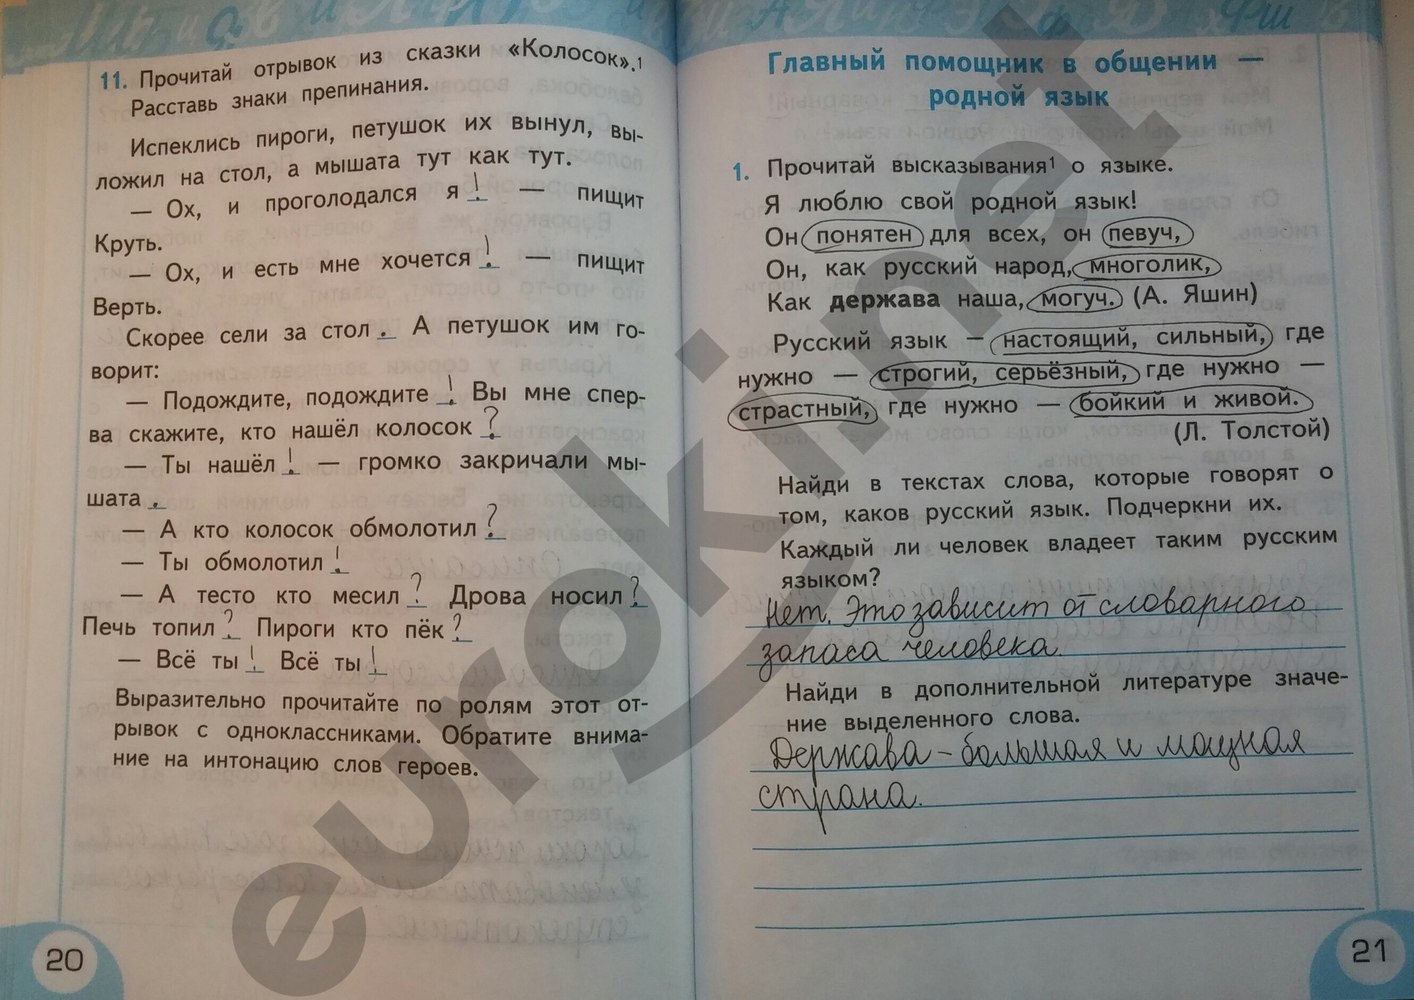 11. Прочитай отрывок из сказки «Колосок».¹
Расставь знаки препинания.
Испеклись пироги, петушок их вынул, вы-
ложил на стол, а мышата тут как тут.
— Ох, и проголодался я ! — пищит
Круть.
— Ох, и есть мне хочется ! — пищит
Верть.
Скорее сели за стол . А петушок им го-
ворит:
— Подождите, подождите ! Вы мне спер-
ва скажите, кто нашёл колосок ?
— Ты нашёл ! — громко закричали мы-
шата .
— А кто колосок обмолотил ?
— Ты обмолотил !
— А тесто кто месил ? Дрова носил ?
Печь топил ? Пироги кто пёк ?
— Всё ты ! Всё ты !
Выразительно прочитайте по ролям этот от-
рывок с одноклассниками. Обратите внима-
ние на интонацию слов героев.
20
Главный помощник в общении —
родной язык
1. Прочитай высказывания¹ о языке.
Я люблю свой родной язык!
Он понятен для всех, он певуч,
Он, как русский народ, многолик,
Как держава наша, могуч. (А. Яшин)
Русский язык — настоящий, сильный, где
нужно — строгий, серьёзный, где нужно —
страстный, где нужно — бойкий и живой.
(Л. Толстой)
Найди в текстах слова, которые говорят о
том, каков русский язык. Подчеркни их.
Каждый ли человек владеет таким русским
языком?
Нет. Это зависит от словарного
запаса человека.
Найди в дополнительной литературе значе-
ние выделенного слова.
Держава - большая и мощная
страна.
21
euroki.net